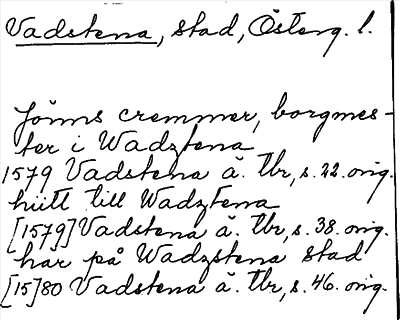 Vadstena, stad, Österg. l.
Jönns cremmer, borgmes-
ter i Wadztena
1579 Vadstena ä. tbr, s. 22. orig.
hiitt till Wadztena
[1579] Vadstena ä. tbr, s. 38. orig.
här på Wadzstena stad
[15]80 Vadstena ä. tbr, s. 46. orig.